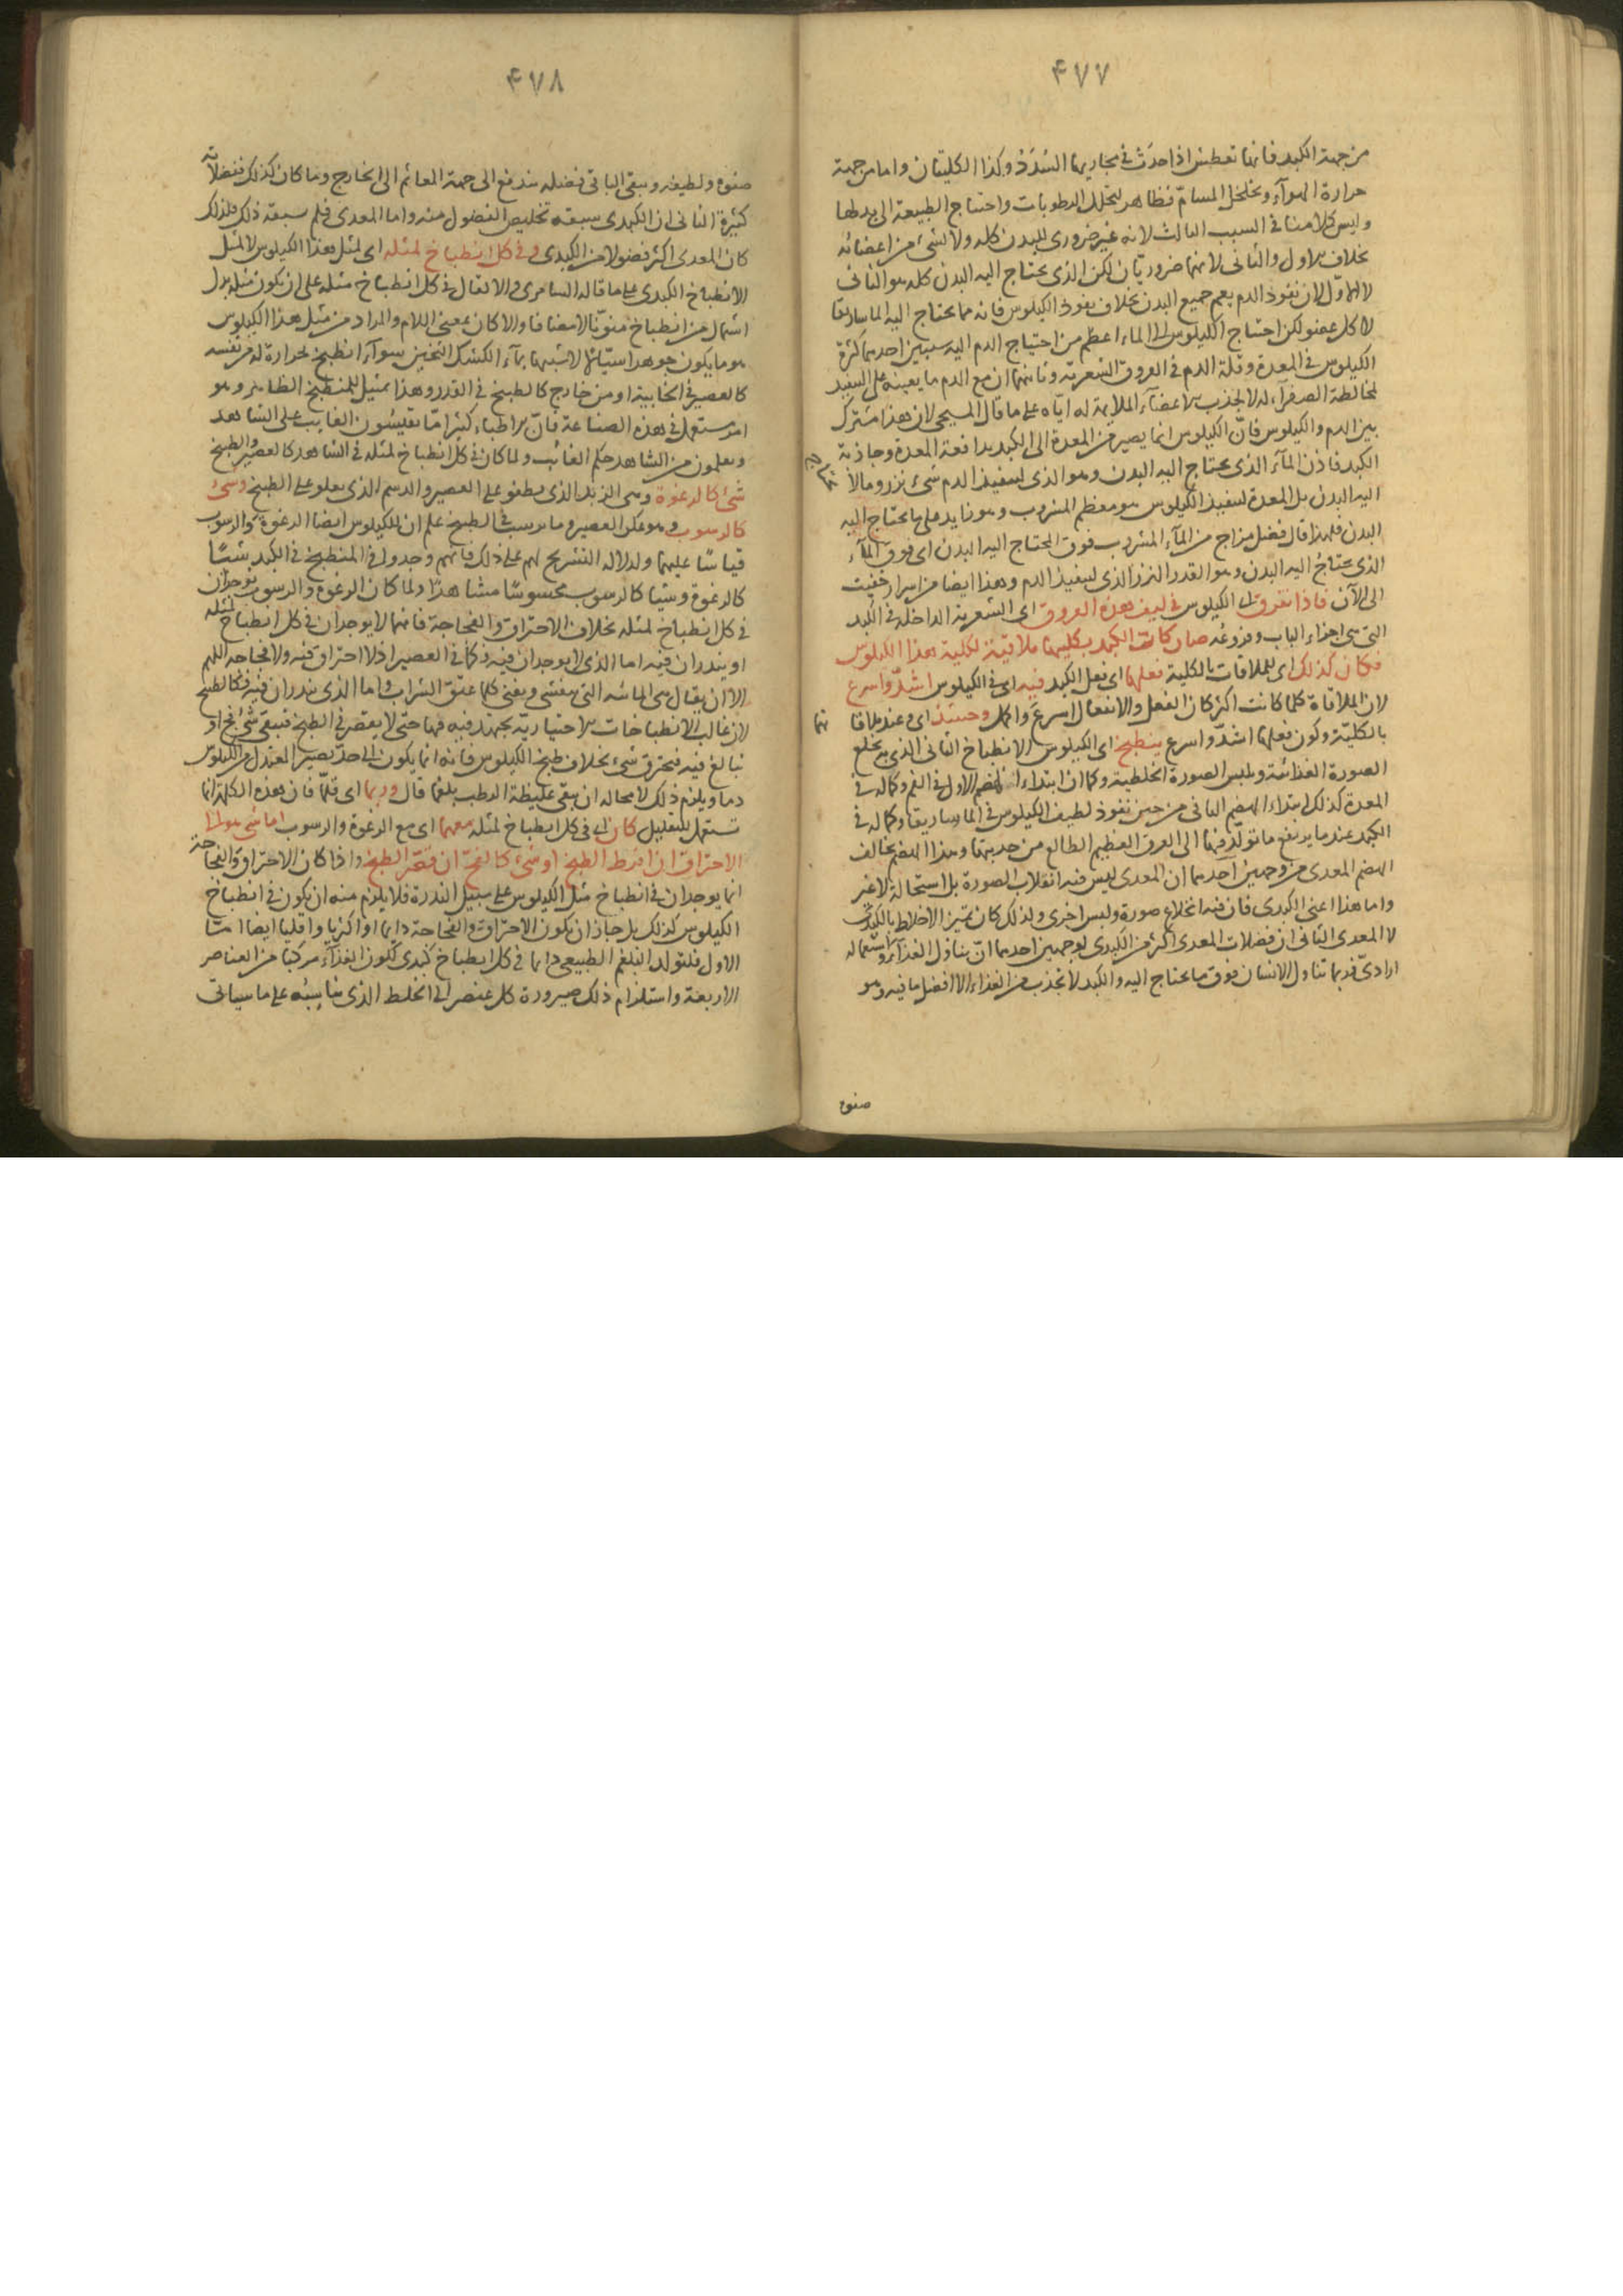 ۴۷۷
من جهة الكبد فانها تعطش اذا حدث فى مجاريها السُدَدُ وكذا الكليتان واما من جهة
حرارة الهوآء وتخلخل المسامّ فظاهر لتحلل الرطوبات واحتياج الطبيعة الى بدلها
وليس كلامنا فى السبب الثالث لانه غير ضرورى للبدن كله ولا لشئ من اعضائه
بخلاف الاول والثانى لانهما ضروريّان لكن الذى يحتاج اليه البدن كله هو الثانى
لا الاوّل لان نفوذ الدم يعم جميع البدن بخلاف نفوذ الكيلوس فانه مما يحتاج اليه الماساريقا
لا كل عضو لكن احتياج الكيلوس الى الماء اعظم من احتياج الدم اليه لسببين احدهما كثرة
الكيلوس فى المعدة وقلة الدم فى العروق الشعرية وثانيهما ان مع الدم ما يعينه على النفيذ
لمخالطة الصفرآء له لا لجذب الاعضآء الملايمة له ايّاه على ما قال المسيحى لان هذا مشترك
بين الدم والكيلوس فانّ الكيلوس انما يصير من المعدة الى الكبد بدافعة المعدة وجاذبة
الكبد فاذن المآء الذى يحتاج اليه البدن وهو الذى لتنفيذ الدم شئ نزر وما لا
اليه البدن بل المعدة لتنفيذ الكيلوس هو معظم المشروب وهو زايد على ما يحتاج اليه
البدن فلهذا قال فضل مزاج من المآء المشروب فوق المحتاج اليه البدن اى فوق المآء
الذى يحتاجُ اليه البدن وهو القدر النزر الذى لتنفيذ الدم وهذا ايضا من اسرار خفيت
الى الآن فاذا تفرق اى الكيلوس فى ليف هذه العروق اى الشعرية الداخلة فى الكبد
التى هى اجزاء الباب وفروعُه صار كان الكبد بكليتها ملاقية لكلية هذا الكيلوس
فكان كذلك اى للملاقات بالكلية فعلها اى فعل الكبد فيه اى فى الكيلوس اشدّ واسرع
لان الملاقاة كلما كانت اكثر كان الفعل والانفعال اسرعَ واكمل وحينئذ اى وعند ملاقا
تها
بالكليّة وكون فعلها اشدّ واسرع ينطبخ اى الكيلوس الانطباخ الثانى الذى به يخلع
الصورة الغذائية ويلبس الصورة الخلطية وكما ان ابتداء الهضم الاول فى الفم وكماله فى
المعدة كذلك ابتداء الهضم الثانى من حين نفوذ لطيف الكيلوس فى الماساريقا وكماله فى
الكبد عند ما يرتفع ما تولّد فيها الى العرق العظيم الطالع من حدبتها وهذا الهضم يخالف
الهضم المعدى من وجهين احدهما ان المعدى ليس فيه انقلاب الصورة بل استحالة لا غير
واما هذا اعنى الكبدى فان فيه انخلاع صورة ولبس اخرى ولذلك كان تميّز الاخلاط بالكبدى
لا المعدى الثانى ان فضلات المعدى اكثر من الكبدى لوجهين احدهما انّ تناول الغذآء واستعماله
ارادىّ فربما تناول الانسان فوق ما يحتاج اليه والكبد لا تجذب من الغذاء الا افضل ما فيه وهو
صفوه
۴۷۸
صفوه ولطيفه ويبقى الباقى فضله يندفع الى جهة المعا ثم الى الخارج وما كان كذلك ففضلاته
كثيرة الثانى ان الكبدى سبقه تخليص الفضول منه واما المعدى فلم يسبقه ذلك فلذلك
كان المعدى اكثر فضولا من الكبدى وفى كل انطباخ لمثله اى لمثل هذا الكيلوس لا لمثل
الانطباخ الكبدى على ما قاله السامرى والا لقال فى كل انطباخ مثله على ان يكون مثله بدل
اشتمال من انطباخ منوّنا لا مضافا والا كان بمعنى اللام والمراد من مثل هذا الكيلوس
هو ما يكون جوهرا سيّالا لا شبيها بمآء الكشك الثخين سوآء انطبخ بحرارة له من نفسه
كالعصير فى الخابية او من خارج كالطبيخ فى القدر وهذا تمثيل للمنطبخ الظاهر وهو
امر مستعمل فى هذه الصناعة فانّ الاطباء كثيرا مّا تقيسُون الغايب على الشاهد
ويعلمون من الشاهد حكم الغائب ولما كان فى كل انطباخ لمثله فى الشاهد كالعصير والطبيخ
شئ كالرغوة وهى الزبد الذى يطفو على العصير والدسم الذى يعلو على الطبيخ وشئ
كالرسوب وهو عكر العصير وما يرسب فى الطبيخ علم ان للكيلوس ايضا الرغوة والرسوب
قياسًا عليهما ولدلالة التشريح لهم على ذلك فانهم وجدوا فى المنطبخ فى الكبد شيئًا
كالرغوة وشيئا كالرسوب محسوسًا مشاهدًا ولما كان الرغوة والرسوب يوجدان
فى كل انطباخ لمثله بخلاف الاحتراق والفجاجة فانهما لا يوجدان فى كل انطباخ لمثله
او يندران فيه اما الذى لا يوجدان فيه فكما فى العصير اذ لا احتراق فيه ولا فجاجة اللهم
الا ان يقال هى المائية التى تفشى وتفنى كلما عتق الشراب واما الذى يندران فيه فكالطبيخ
لان غالب الانطباخات الاختيارية يجتهد فيه فيها حتى لا يقصر فى الطبخ فيبقى شئ فج او
يبالغ فيه فيحترق شئ بخلاف طبخ الكيلوس فانه انما يكون الى حدّ يصير المعتدل من الكيلوس
دما ويلزم ذلك لا محالة ان يبقى غليظة الرطب بلغما قال وربما اى قلّما فان هذه الكلمة انما
تستعمل للتقليل كان اى فى كل انطباخ لمثله معهما اى مع الرغوة والرسوب اما شئ هو الى
الاحتراق ان افرط الطبخ او شئ كالفجّ ان قصّر الطبخ واذا كان الاحتراق والفجاجة
انما يوجدان فى انطباخ مثل الكيلوس على سبيل الندرة فلا يلزم منه ان يكون فى انطباخ
الكيلوس كذلك بل جاز ان يكون الاحتراق والفجاجة دايما او اكثريا واقليا ايضا امّا
الاول فلتولد البلغم الطبيعى دايما فى كل انطباخ كبدى لكون الغذآء مركبا من العناصر
الاربعة واستلزام ذلك صيرورة كل عنصر الى الخلط الذى يناسبُه على ما سياتى